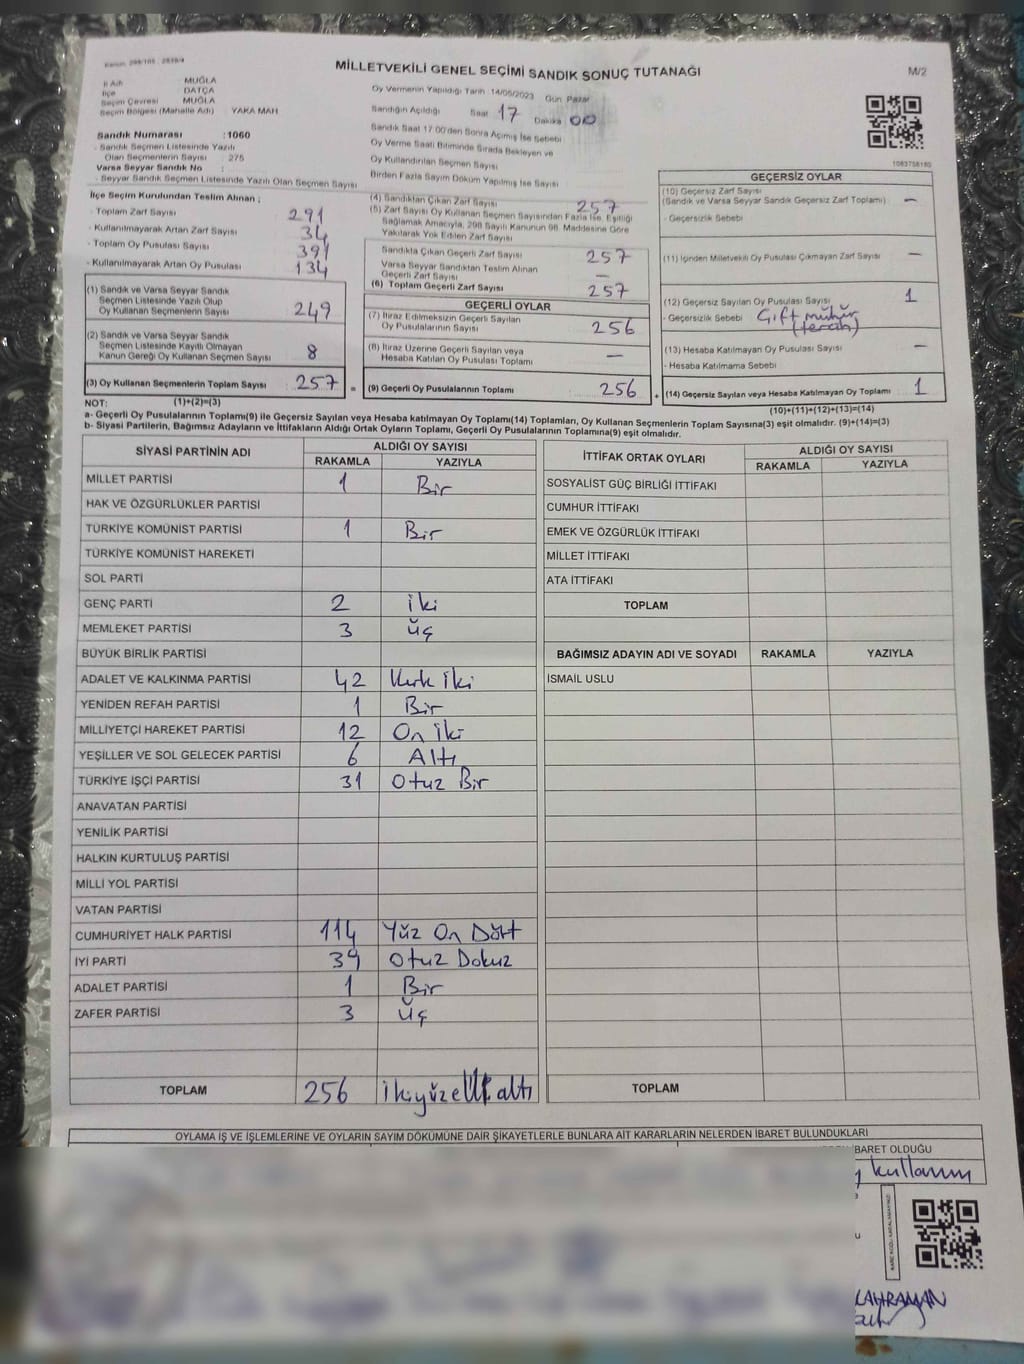 Kanun: 298/105 , 2839/4
MİLLETVEKİLİ GENEL SEÇİMİ SANDIK SONUÇ TUTANAĞI
M/2
İl Adı MUĞLA
İlçe DATÇA
Seçim Çevresi MUĞLA
Seçim Bölgesi (Mahalle Adı) YAKA MAH
Sandık Numarası :1060
- Sandık Seçmen Listesinde Yazılı
Olan Seçmenlerin Sayısı : 275
Varsa Seyyar Sandık No :
- Seyyar Sandık Seçmen Listesinde Yazılı Olan Seçmen Sayısı
Oy Vermenin Yapıldığı Tarih :14/05/2023 Gün Pazar
Sandığın Açıldığı Saat 17 Dakika 00
Sandık Saat 17:00'den Sonra Açılmış İse Sebebi
Oy Verme Saati Bitiminde Sırada Bekleyen ve
Oy Kullandırılan Seçmen Sayısı
Birden Fazla Sayım Döküm Yapılmış İse Sayısı
1083758185
İlçe Seçim Kurulundan Teslim Alınan ;
- Toplam Zarf Sayısı 291
- Kullanılmayarak Artan Zarf Sayısı 34
- Toplam Oy Pusulası Sayısı 391
- Kullanılmayarak Artan Oy Pusulası 134
(1) Sandık ve Varsa Seyyar Sandık
Seçmen Listesinde Yazılı Olup
Oy Kullanan Seçmenlerin Sayısı : 249
(2) Sandık ve Varsa Seyyar Sandık
Seçmen Listesinde Kayıtlı Olmayan
Kanun Gereği Oy Kullanan Seçmen Sayısı : 8
(3) Oy Kullanan Seçmenlerin Toplam Sayısı : 257 =
(4) Sandıktan Çıkan Zarf Sayısı 257
(5) Zarf Sayısı Oy Kullanan Seçmen Sayısından Fazla İse, Eşitliği
Sağlamak Amacıyla, 298 Sayılı Kanunun 98. Maddesine Göre
Yakılarak Yok Edilen Zarf Sayısı
Sandıkta Çıkan Geçerli Zarf Sayısı 257
Varsa Seyyar Sandıktan Teslim Alınan
Geçerli Zarf Sayısı –
(6) Toplam Geçerli Zarf Sayısı 257
GEÇERLİ OYLAR
(7) İtiraz Edilmeksizin Geçerli Sayılan
Oy Pusulalarının Sayısı 256
(8) İtiraz Üzerine Geçerli Sayılan veya
Hesaba Katılan Oy Pusulası Toplamı –
(9) Geçerli Oy Pusulalarının Toplamı : 256 +
GEÇERSİZ OYLAR
(10) Geçersiz Zarf Sayısı
(Sandık ve Varsa Seyyar Sandık Geçersiz Zarf Toplamı) –
- Geçersizlik Sebebi
(11) İçinden Milletvekili Oy Pusulası Çıkmayan Zarf Sayısı –
(12) Geçersiz Sayılan Oy Pusulası Sayısı 1
- Geçersizlik Sebebi Çift mühür
(tercih)
(13) Hesaba Katılmayan Oy Pusulası Sayısı –
- Hesaba Katılmama Sebebi
(14) Geçersiz Sayılan veya Hesaba Katılmayan Oy Toplamı : 1
NOT: (1)+(2)=(3)
(10)+(11)+(12)+(13)=(14)
a- Geçerli Oy Pusulalarının Toplamı(9) ile Geçersiz Sayılan veya Hesaba katılmayan Oy Toplamı(14) Toplamları, Oy Kullanan Seçmenlerin Toplam Sayısına(3) eşit olmalıdır. (9)+(14)=(3)
b- Siyasi Partilerin, Bağımsız Adayların ve İttifakların Aldığı Ortak Oyların Toplamı, Geçerli Oy Pusulalarının Toplamına(9) eşit olmalıdır.
SİYASİ PARTİNİN ADI ALDIĞI OY SAYISI
RAKAMLA YAZIYLA
MİLLET PARTİSİ 1 Bir
HAK VE ÖZGÜRLÜKLER PARTİSİ
TÜRKİYE KOMÜNİST PARTİSİ 1 Bir
TÜRKİYE KOMÜNİST HAREKETİ
SOL PARTİ
GENÇ PARTİ 2 iki
MEMLEKET PARTİSİ 3 Üç
BÜYÜK BİRLİK PARTİSİ
ADALET VE KALKINMA PARTİSİ 42 Kırk iki
YENİDEN REFAH PARTİSİ 1 Bir
MİLLİYETÇİ HAREKET PARTİSİ 12 On iki
YEŞİLLER VE SOL GELECEK PARTİSİ 6 Altı
TÜRKİYE İŞÇİ PARTİSİ 31 Otuz Bir
ANAVATAN PARTİSİ
YENİLİK PARTİSİ
HALKIN KURTULUŞ PARTİSİ
MİLLİ YOL PARTİSİ
VATAN PARTİSİ
CUMHURİYET HALK PARTİSİ 114 Yüz On Dört
İYİ PARTİ 39 Otuz Dokuz
ADALET PARTİSİ 1 Bir
ZAFER PARTİSİ 3 Üç
TOPLAM 256 ikiyüzelli altı
İTTİFAK ORTAK OYLARI ALDIĞI OY SAYISI
RAKAMLA YAZIYLA
SOSYALİST GÜÇ BİRLİĞİ İTTİFAKI
CUMHUR İTTİFAKI
EMEK VE ÖZGÜRLÜK İTTİFAKI
MİLLET İTTİFAKI
ATA İTTİFAKI
TOPLAM
BAĞIMSIZ ADAYIN ADI VE SOYADI RAKAMLA YAZIYLA
İSMAİL USLU
TOPLAM
OYLAMA İŞ VE İŞLEMLERİNE VE OYLARIN SAYIM DÖKÜMÜNE DAİR ŞİKAYETLERLE BUNLARA AİT KARARLARIN NELERDEN İBARET BULUNDUKLARI
BARET OLDUĞU
kullanım